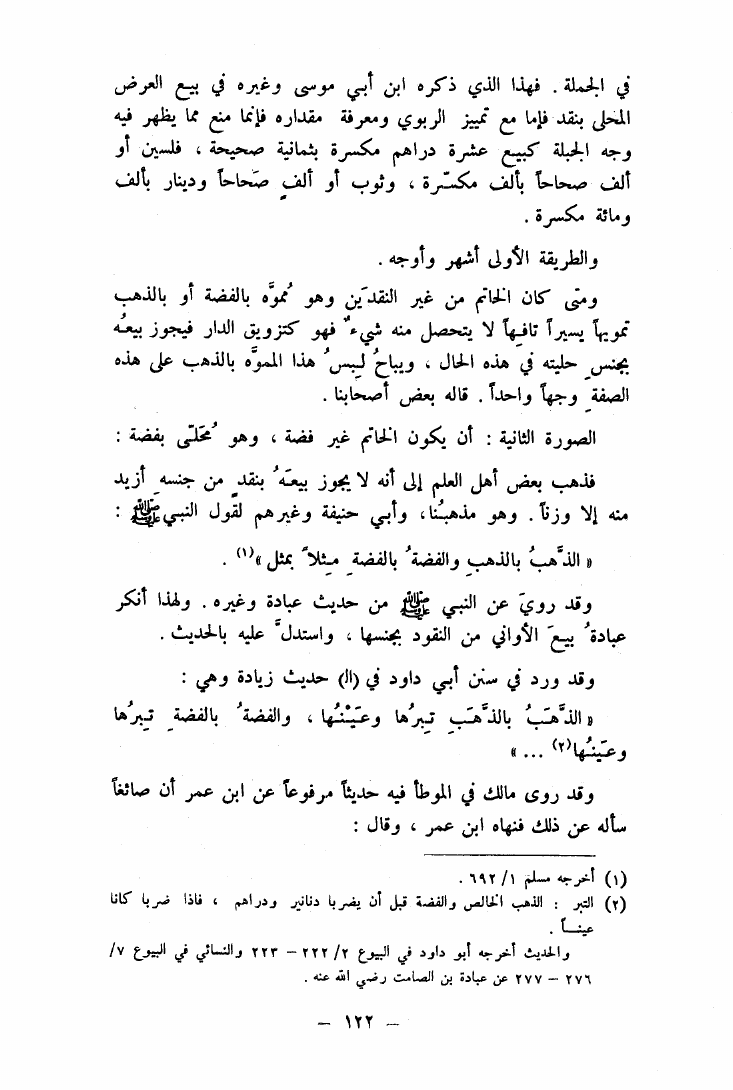 في الجملة . فهذا الذي ذكره ابن أبي موسى وغيره في بيع العرض
المحلى بنقد فإما مع تمييز الربوي ومعرفة مقداره فإنما منع مما يظهر فيه
وجه الحيلة كبيع عشرة دراهم مكسرة بثمانية صحيحة ، فلسين أو
ألف صحاحاً بألف مكسّرة ، وثوب أو ألفٍ صَحاحاً ودينار بألف
ومائة مكسرة .
والطريقة الأولى أشهر وأوجه .
ومتى كان الخاتم من غير النقدَين وهو مُموَّه بالفضة أو بالذهب
تمويهاً يسيراً تافهاً لا يتحصل منه شيءٌ فهو كتزويق الدار فيجوز بيعهُ
بجنسِ حليته في هذه الحال ، ويباحُ لبِسُ هذا المموَّه بالذهب على هذه
الصفةِ وجهاً واحداً . قاله بعض أصحابنا .
الصورة الثانية : أن يكون الخاتم غير فضة ، وهو مُحَلّى بفضة :
فذهب بعض أهل العلم إلى أنه لا يجوز بيعَهُ بنقدٍ من جنسهِ أزيد
منه إلا وزناً . وهو مذهبُنا، وأبي حنيفة وغيرهم لقول النبي ﷺ :
« الذَّهبُ بالذهبِ والفضةُ بالفضةِ مِثلاً بمثل »(١) .
وقد رويَ عن النبي ﷺ من حديث عبادة وغيره . ولهذا أنكر
عبادةُ بيعَ الأواني من النقود بجنسها ، واستدلَّ عليه بالحديث .
وقد ورد في سنن أبي داود في (ال) حديث زيادة وهي :
« الذَّهَبُ بالذَّهَبِ تِبرُها وعَيْنُها ، والفضةُ بالفضةِ تِبرُها
وعَينُها(٢) ... »
وقد روى مالك في الموطأ فيه حديثاً مرفوعاً عن ابن عمر أن صائغاً
سأله عن ذلك فنهاه ابن عمر ، وقال :
(١) أخرجه مسلم ١/ ٦٩٢ .
(٢) التبر : الذهب الخالص والفضة قبل أن يضربا دنانير ودراهم ، فاذا ضربا كانا
عيناً .
والحديث أخرجه أبو داود في البيوع ٢/ ٢٢٢ – ٢٢٣ والنسائي في البيوع ٧/
٢٧٦ – ٢٧٧ عن عبادة بن الصامت رضي الله عنه .
– ١٢٢ –